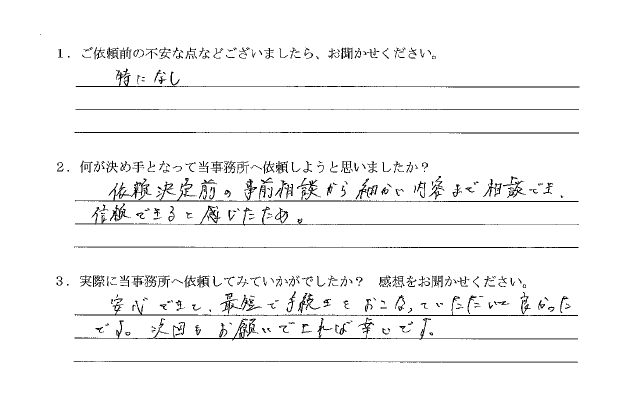 1．ご依頼前の不安な点などございましたら、お聞かせください。
特になし
2．何が決め手となって当事務所へ依頼しようと思いましたか？
依頼決定前の事前相談から細かい内容まで相談でき、
信頼できると感じたため。
3．実際に当事務所へ依頼してみていかがでしたか？　感想をお聞かせください。
安心できて、最短で手続きをおこなっていただいて良かった
です。次回もお願いできれば幸いです。